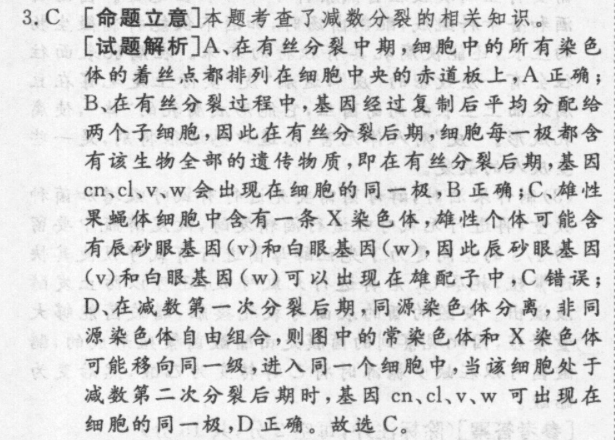 3. C [命题立意]本题考查了减数分裂的相关知识。
[试题解析]A、在有丝分裂中期,细胞中的所有染色
体的着丝点都排列在细胞中央的赤道板上,A正确;
B、在有丝分裂过程中,基因经过复制后平均分配给
两个子细胞,因此在有丝分裂后期,细胞每一极都含
有该生物全部的遗传物质,即在有丝分裂后期,基因
cn、cl、v、w会出现在细胞的同一极,B正确;C、雄性
果蝇体细胞中含有一条X染色体,雄性个体可能含
有辰砂眼基因(v)和白眼基因(w),因此辰砂眼基因
(v)和白眼基因(w)可以出现在雄配子中,C错误;
D、在减数第一次分裂后期,同源染色体分离,非同
源染色体自由组合,则图中的常染色体于X染色体
可能移向同一级,进入同一个细胞中,当该细胞处于
减数第二次分裂后期时,基因cn、cl、v、w可出现在
细胞的同一极,D正确。故选C。